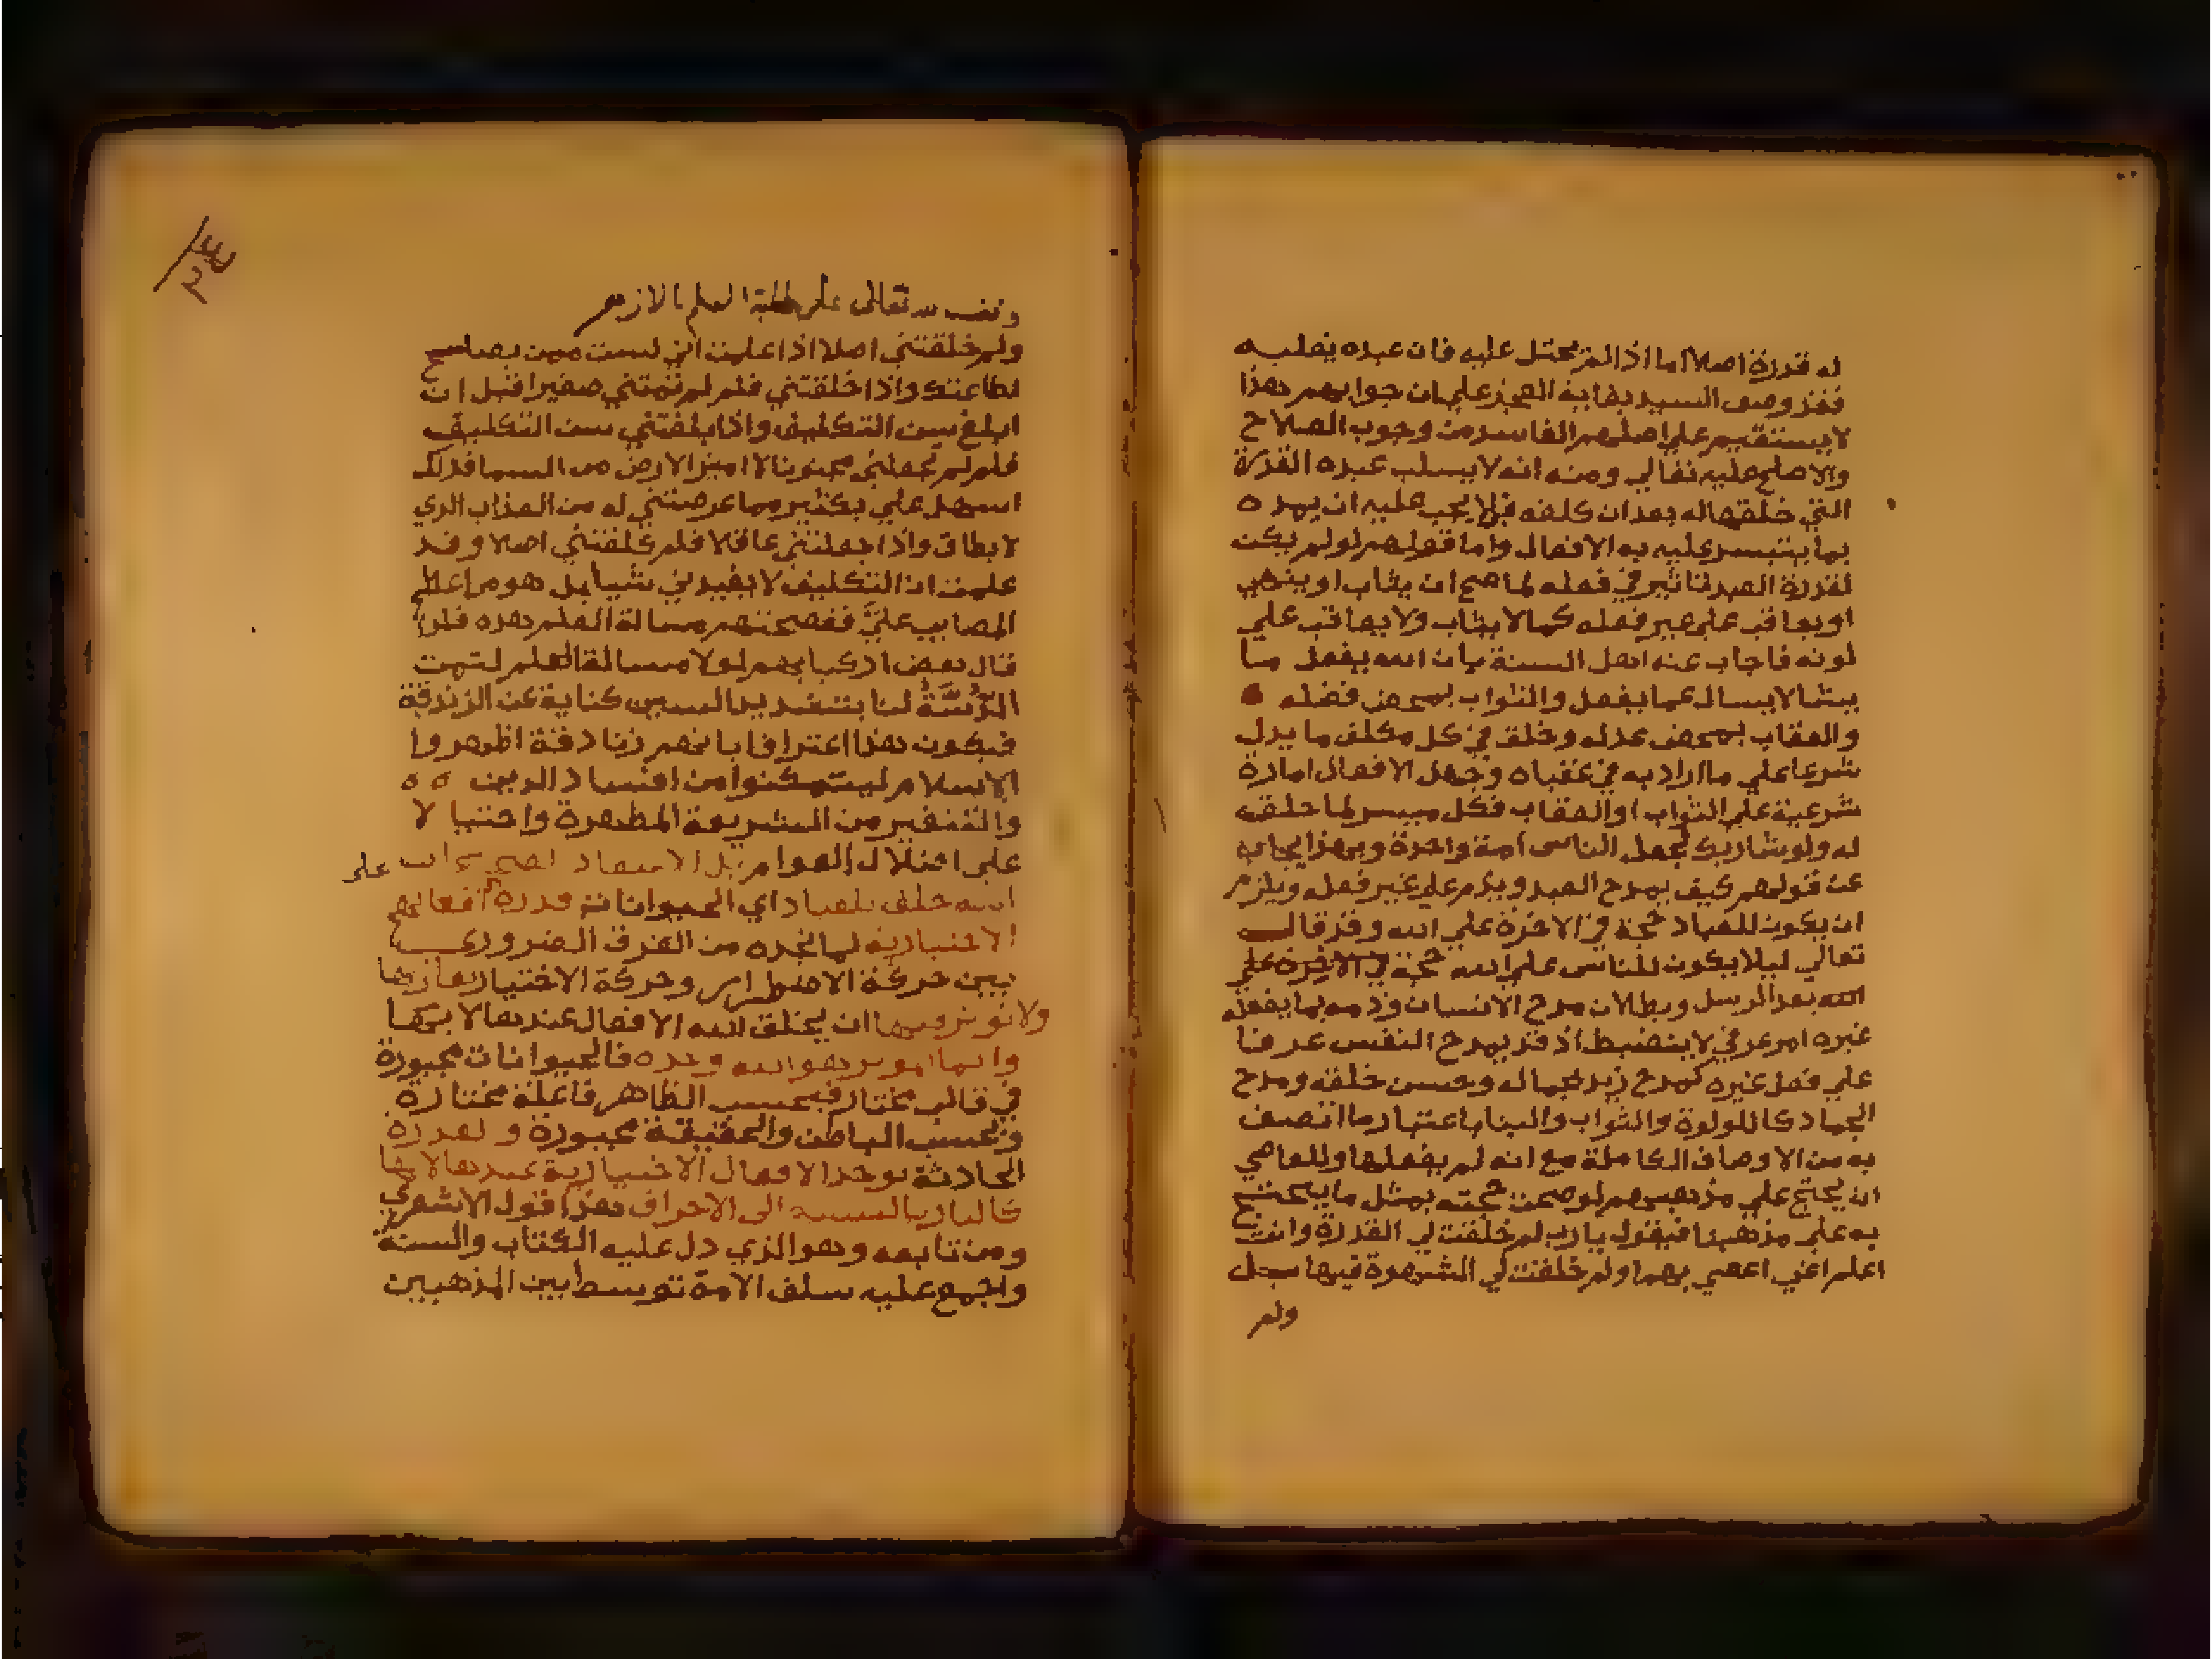 له قدرة اصلا اما اذا لم يحتل عليه فان عبده يغلبه
فقد وصف السيد بغاية العجز علي ان جوابهم هذا
لا يستقيم علي اصلهم الفاسد من وجوب الصلاح
والاصلح عليه تعالي ومنه انه لا يسلب عبده القدرة
التي خلقها له بعد ان كلفه بل يجب عليه ان يمده
بما يتيسر عليه به الافعال واما قولهم لو لم يكن
لقدرة العبد تاثير في فعله لما صح ان يثاب او
او يعاقب علي غير فعله كما لا يثاب ولا يعاقب علي
لونه فاجاب عنه اهل السنة بان الله يفعل ما
يشا لا يسال عما يفعل والثواب بمحض فضله
والعقاب بمحض عدله وخلق في كل مكلف ما يدل
شرعا علي ما اراد به في عقباه وجعل الافعال امارة
شرعية علي الثواب او العقاب فكل ميسر لما خلق
له ولو شا ربك لجعل الناس امة واحدة وبهذا يجاب
عن قولهم كيف يمدح العبد ويذم علي غير فعله ويلزم
ان يكون للعباد حجة في الاخرة علي الله وقد قال
تعالي ليلا يكون للناس علي الله حجة في الاخرة علي
الله بعد الرسل وبطلان مدح الانسان وذمه بما يفعله
غيره امر عرفي لا ينضبط اذ قد يمدح النفس عرفا
علي فعل غيره كمدح زيد لجماله وحسن خلقه ومدح
الجماد كاللولوة والثواب والبنا باعتبار ما اتصف
به من الاوصاف الكاملة مع انه لم يفعلها وللعاصي
ان يحتج علي مذهبهم لو صحت حجته بمثل ما يحتج
به علي مذهبنا فيقول يا رب لم خلقت لي القدرة وانت
اعلم اني اعصي بهما ولم خلقت لي الشهوة فيها
ولم
وقف لله تعالى على طلبة العلم بالازهر
ولم خلقتني اصلا اذا علمت اني لست ممن يصلح
لطاعتك واذا خلقتني فلم لم تمتني صغيرا قبل ان
ابلغ سن التكليف واذا بلغتني سن التكليف
فلم لم تجعلني مجنونا لا اميز الارض من السما فذلك
اسهل علي بكثير مما عرضتني له من العذاب الذي
لا يطاق واذا جعلتني عاقلا فلم كلفتني اصلا وقد
علمت ان التكليف لا يفيدني شيا بل هو من اعظم
المصايب عليَّ ففضحتهم مسالة العلم هذه فلذا
قال بعض اذكيايهم لولا مسالة العلم لتمت
الدَّسَّةُ لنا بتشديد السين كناية عن الزندقة
فيكون هذا اعترافا بانهم زنادقة اظهروا
الاسلام ليتمكنوا من افساد الدين ه ه
والتنفير من الشريعة المطهرة واحتيا لا
علي اضلال العوام بل الاعتقاد الصحيح ان
الله خلق للعباد اي الحيوانات قدرة على افعالهم
الاختيارية لما نجده من الفرق الضروري
بين حركة الاضطرار وحركة الاختيار
ولا تؤثر فيها ان يخلق الله الافعال عندها لا بها
وانما الموثر هو الله وحده فالحيوانات مجبورة
في قالب مختار فبحسب الظاهر فاعلة مختارة
وبحسب الباطن والحقيقة مجبورة والقدرة
الحادثة توجد الافعال الاختيارية عندها لا بها
كالنار بالنسبة الى الاحراق هذا قول الاشعري
ومن تابعه وهو الذي دل عليه الكتاب والسنة
واجمع عليه سلف الامة توسط بين المذهبين